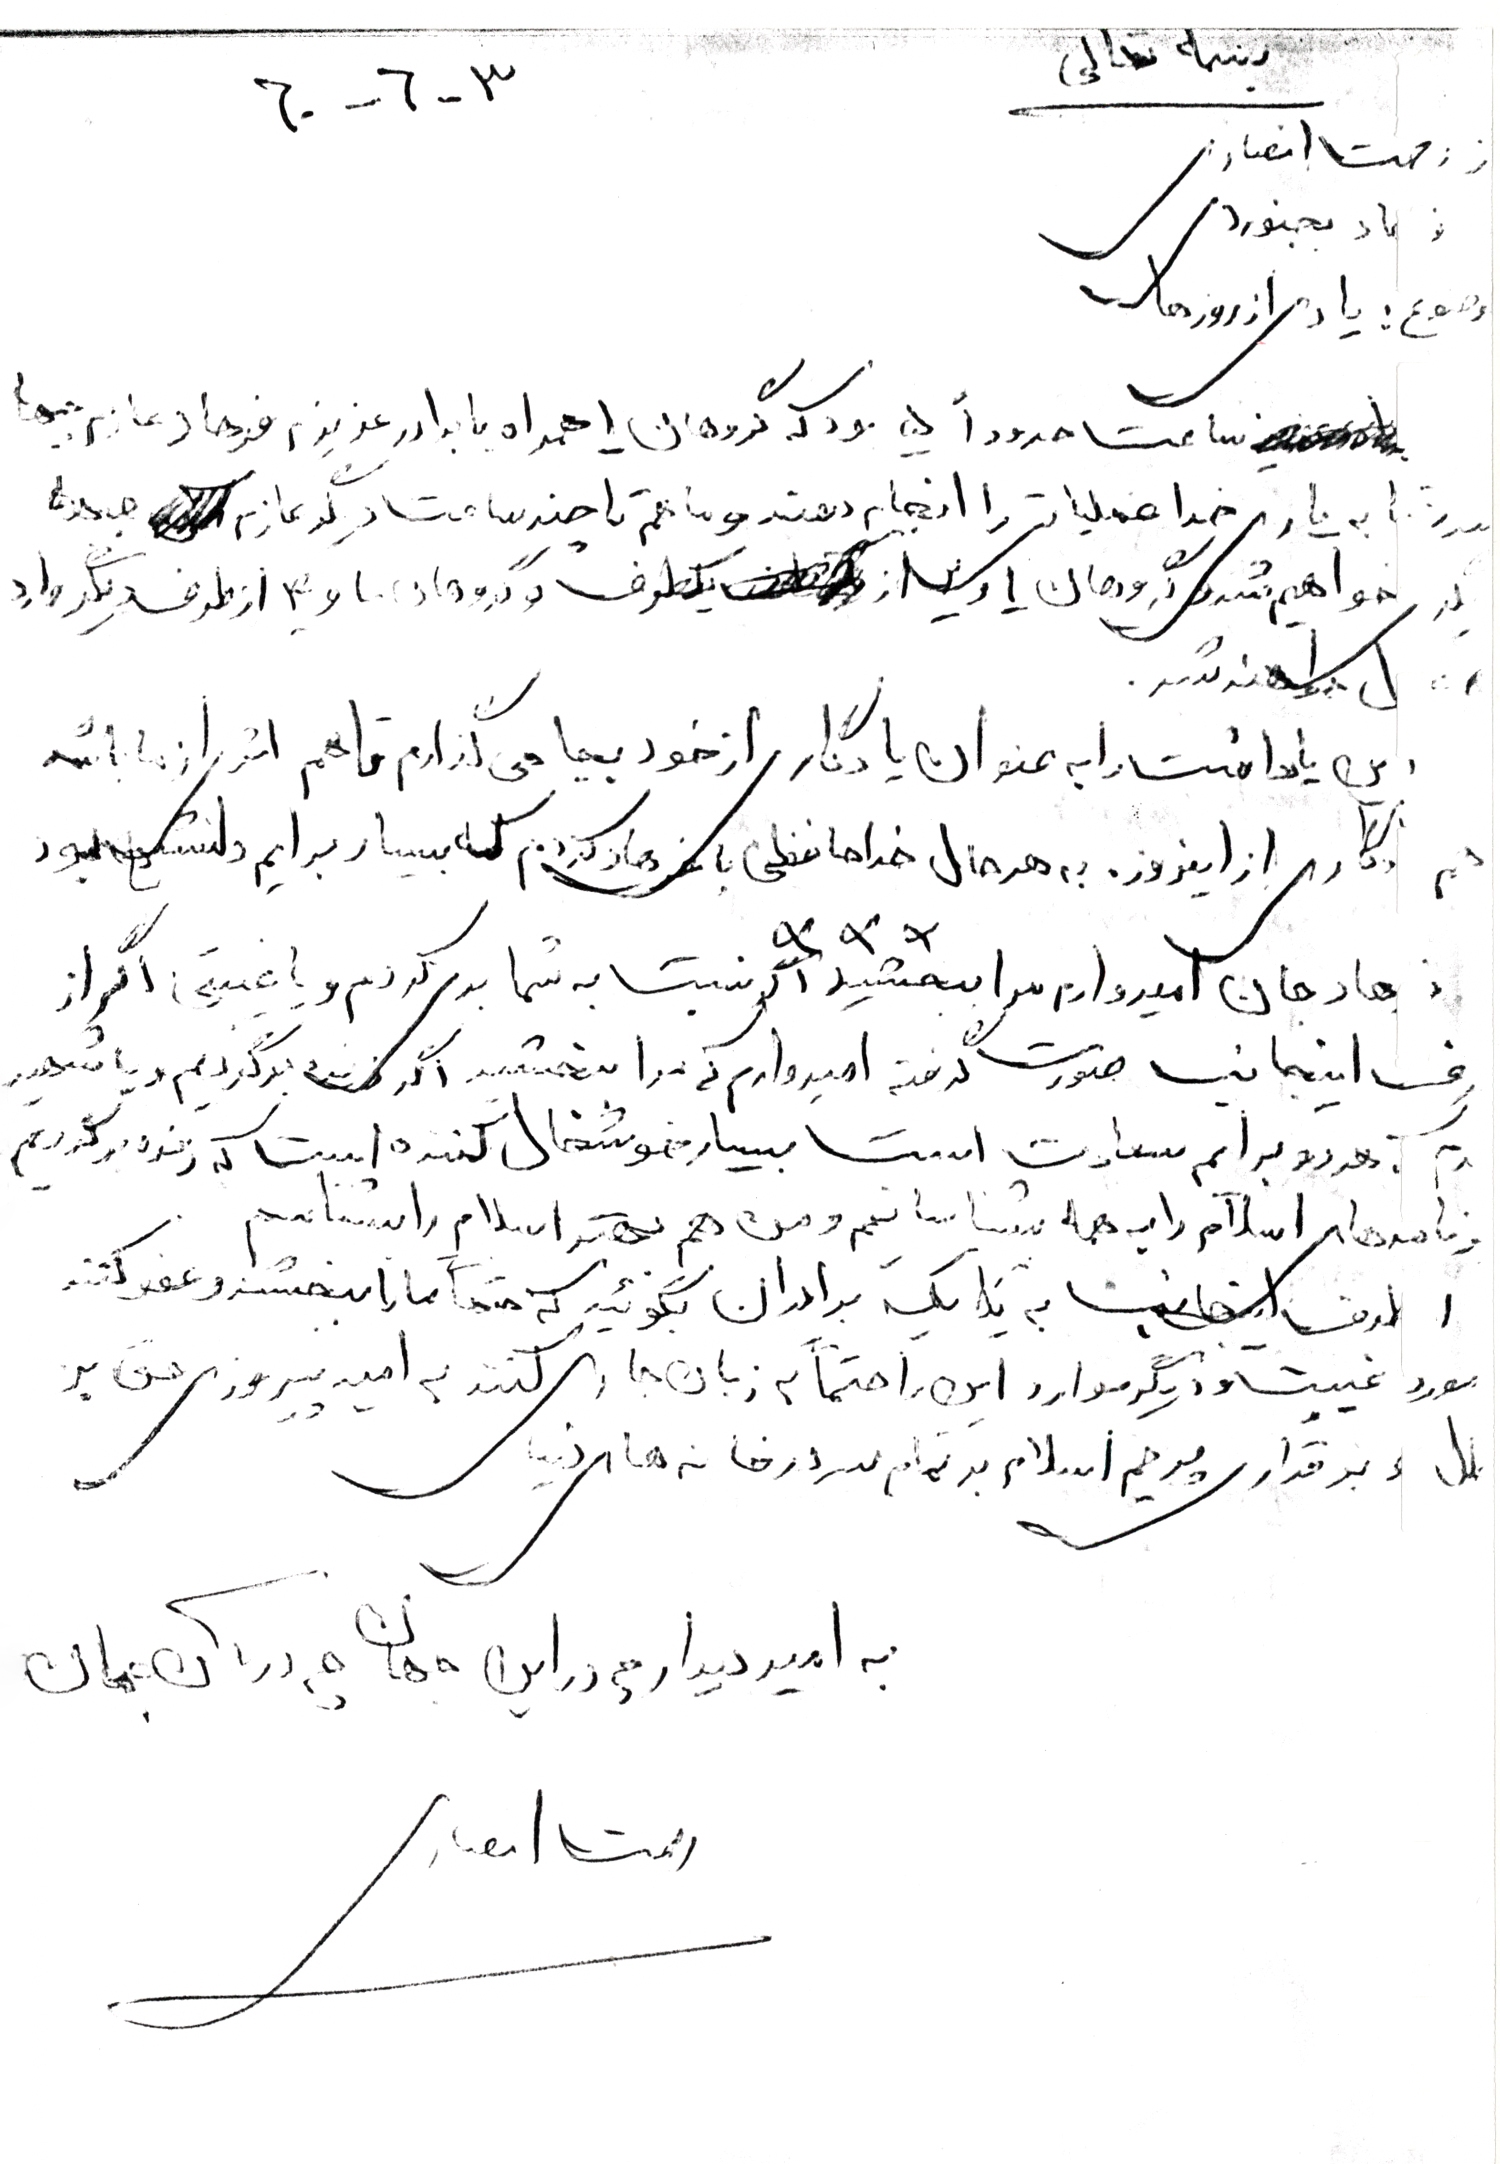 بسمه تعالی
۳-۶-۶۰
رحمت انصاری
بجنوردی
موضوع: یادی از روزهای
ساعت حدوداً بود که گروهان ۱ همراه با برادر عزیزم فرهاد عازم جبهه
به یاری خدا عملیات را انجام دهند و ما هم تا چند ساعت دیگر عازم جبهه
خواهیم شد گروهان ۱ و ۲ از یکطرف و گروهان ما و ۴ از طرف دیگر وارد
خواهند شد.
این یادداشت را به عنوان یادگاری از خود بجا می گذارم تا هم اثری از ما باشد
هم یادگاری از اینروز. به هر حال خداحافظی با فرهاد کردم که بسیار برایم دلنشین بود
× × ×
فرهاد جان امیدوارم مرا ببخشید اگر نسبت به شما بدی کردم و یا غیبتی اگر از
طرف اینجانب صورت گرفته امیدوارم که مرا ببخشید اگر زنده برگردیم و یا شهید
هردو برایم سعادت است بسیار خوشحال کننده است که زنده برگردیم
برنامه های اسلام را به همه بشناسانیم و من هم بهتر اسلام را بشناسم
از طرف اینجانب به یکایک برادران بگوئید که حتماً ما را ببخشند و عفو کنند
مورد غیبت و دیگر موارد این را حتماً به زبان جاری کنند به امید پیروزی حق بر
باطل و برقراری پرچم اسلام بر تمام سردر خانه های دنیا
به امید دیدار چه در این جهان چه در آن جهان
رحمت انصاری